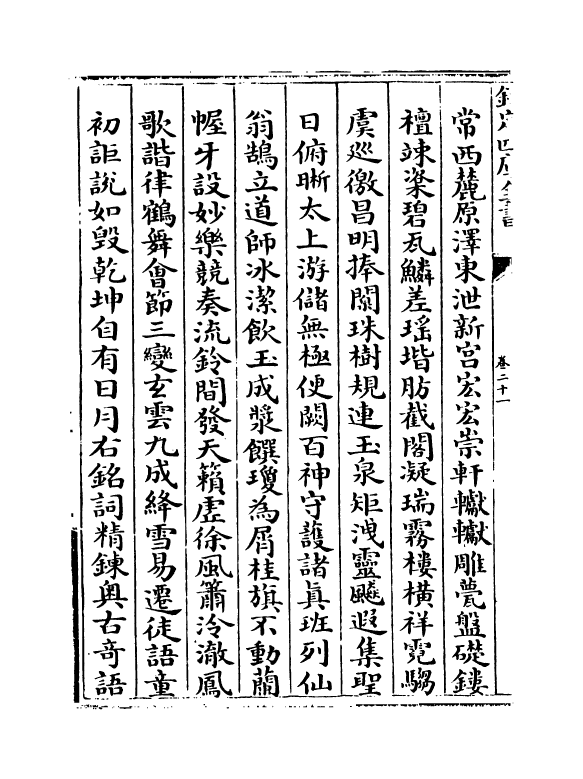 欽定四庫全書
卷二十一
常西麓原澤東泄新宫宏宏崇軒轞轞雕甍盤礎鏤
檀竦棨碧瓦鱗差瑶堦肪截閣凝瑞霧樓横祥霓騶
虞巡徼昌明捧闑珠樹規連玉泉矩洩靈飈遐集聖
日俯晰太上游儲無極便闕百神守護諸真班列仙
翁鵠立道師冰潔飲玉成漿饌瓊為屑桂旗不動蘭
幄牙設妙樂競奏流鈴間發天籟虚徐風簫泠澈鳳
歌諧律鶴舞會節三變玄雲九成絳雪易遷徒語童
初詎説如毁乾坤自有日月右銘詞精鍊奥古竒語